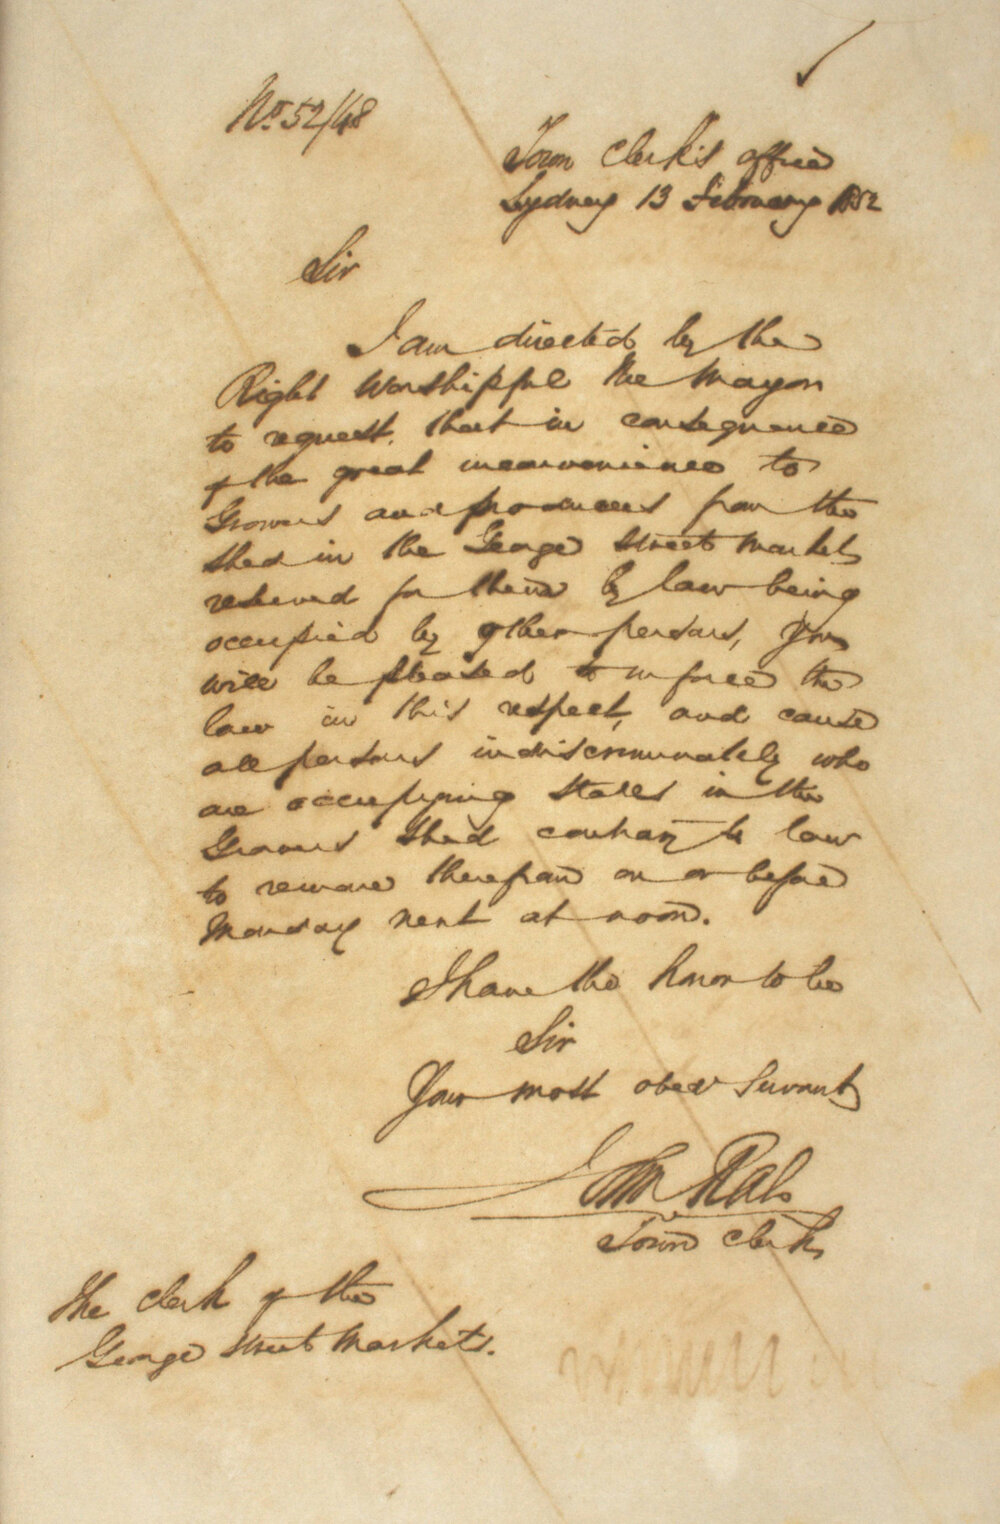 No. 52/48
Town Clerk's office
Sydney 13 February 1852
Sir
I am directed by the
Right Worshipful the Mayor
to request, that in consequence
of the great inconvenience to
Growers and producers from the
shed in the George Street Markets
reserved for them by law being
occupied by other persons, you
will be pleased to inforce the
law in this respect, and cause
all persons indiscriminately who
are occupying stalls in the
Growers Shed contrary to law
to remove therefrom on or before
Monday next at noon.
I have the honor to be
Sir
Your most obedt Servant
John Rae
Town Clerk
The Clerk of the
George Street Markets.